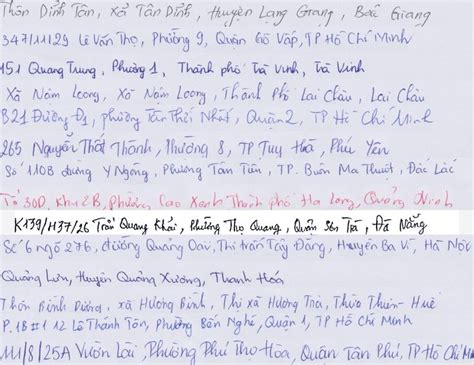 Thôn Dĩnh Tân, Xã Tân Dĩnh, Huyện Lạng Giang, Bắc Giang
347/11129 Lê Văn Thọ, Phường 9, Quận Gò Vấp, TP Hồ Chí Minh
151 Quang Trung, Phường 1, Thành phố Trà Vinh, Trà Vinh
Xã Nậm Loong, Xã Nậm Loong, Thành Phố Lai Châu, Lai Châu
B21 Đường Đ1, phường Tân Thới Nhất, Quận 2, TP Hồ Chí Minh
265 Nguyễn Thất Thành, Phường 8, TP Tuy Hoà, Phú Yên
Số 110B đường Y Ngông, Phường Tân Tiến, TP. Buôn Ma Thuột, Đắc Lắc
Tổ 30D, Khu 2B, Phường Cao Xanh Thành phố Hạ Long, Quảng Ninh
K139/H37/26 Trần Quang Khải, phường Thọ Quang, Quận Sơn Trà, Đà Nẵng
Số 6 ngõ 276, đường Quảng Oai, Thị trấn Tây Đằng, Huyện Ba Vì, Hà Nội
Quảng Lưu, Huyện Quảng Xương, Thanh Hoá
Thôn Bình Dương, xã Hương Bình, Thị xã Hương Trà, Thừa Thiên-Huế
P.1B#1 12 Lê Thánh Tôn, Phường Bến Nghé, Quận 1, TP Hồ Chí Minh
111/8/25A Vườn Lài, Phường Phú Thọ Hòa, Quận Tân Phú, TP Hồ Chí Mi